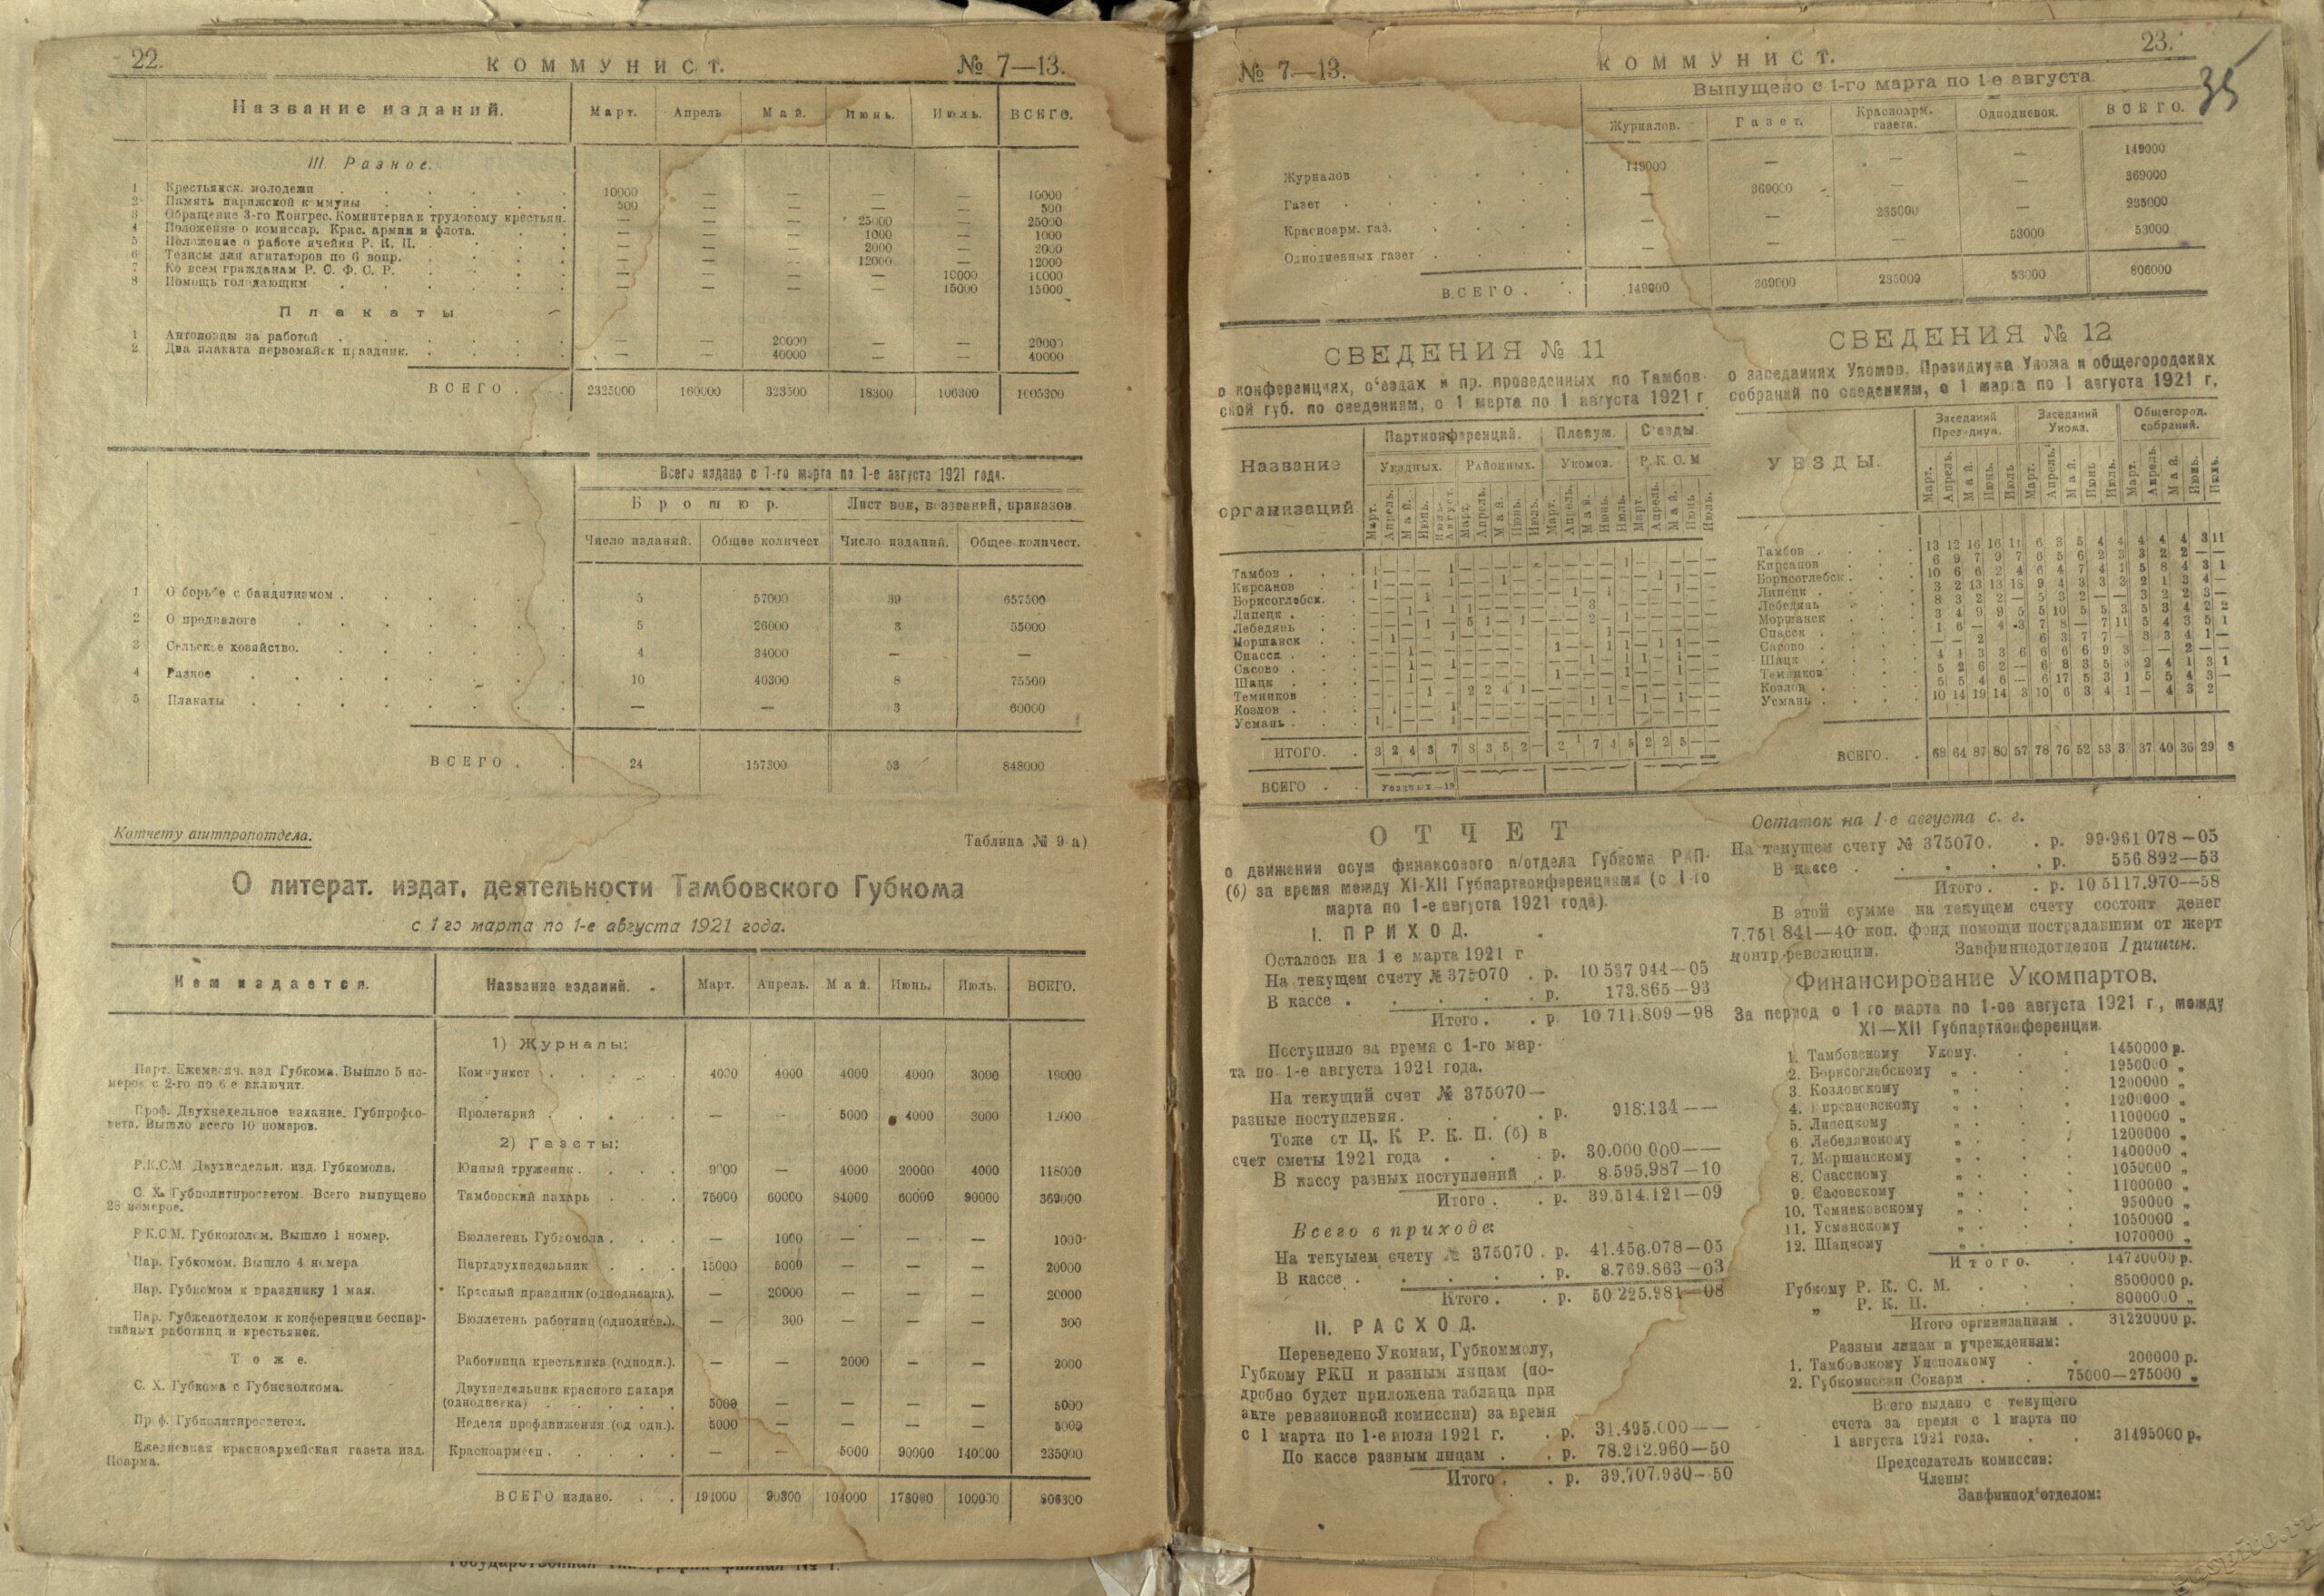 22.
КОММУНИСТ.
№ 7—13.
Название изданий. Март. Апрель Май. Июнь. Июль. ВСЕГО.
III. Разное.
1 Крестьянск. молодежи 10000 — — — — 10000
2 Память парижской коммуны 500 — — — — 500
3 Обращение 3-го Конгрес. Коминтерна к трудовому крестьян. — — — 25000 — 25000
4 Положение о комиссар. Крас. армии и флота. — — — 1000 — 1000
5 Положение о работе ячейки Р. К. П. — — — 2000 — 2000
6 Тезисы для агитаторов по 6 вопр. — — — 12000 — 12000
7 Ко всем гражданам Р. С. Ф. С. Р. — — — — 10000 10000
8 Помощь голодающим — — — — 15000 15000
Плакаты
1 Антоновцы за работой — — 20000 — — 20000
2 Два плаката первомайск праздник. — — 40000 — — 40000
ВСЕГО 2325000 160000 323500 18300 106300 1005300
Всего издано с 1-го марта по 1-е августа 1921 года.
Брошюр. Лист вок, воззваний, приказов.
Число изданий. Общее количест Число изданий. Общее количест.
1 О борьбе с бандитизмом 5 57000 39 657500
2 О продналоге 5 26000 3 55000
3 Сельское хозяйство. 4 34000 — —
4 Разное 10 40300 8 75500
5 Плакаты — — 3 60000
ВСЕГО 24 157300 53 848000
К отчету агитпропотдела.
Таблица № 9 а)
О литерат. издат. деятельности Тамбовского Губкома
с 1 го марта по 1-е августа 1921 года.
Кем издается. Название изданий. Март. Апрель. Май. Июнь. Июль. ВСЕГО.
1) Журналы:
Парт. Ежемесяч. изд Губкома. Вышло 5 но-
меров с 2-го по 6 е включит. Коммунист 4000 4000 4000 4000 3000 19000
Проф. Двухнедельное издание. Губпрофсо-
вета. Вышло всего 10 номеров. Пролетарий — - 5000 4000 3000 12000
2) Газеты:
Р.К.С.М. Двухнедельн. изд. Губкомола. Юнный труженик 9000 — 4000 20000 4000 118000
С. Х. Губполитпросветом. Всего выпущено
28 номеров. Тамбовский пахарь 75000 60000 84000 60000 90000 369000
Р.К.С.М. Губкомолом. Вышло 1 номер. Бюллетень Губкомола — 1000 — — — 1000
Пар. Губкомом. Вышло 4 номера Партдвухнедельник 15000 5000 — — — 20000
Пар. Губкомом к празднику 1 мая. Красный праздник (однодневка). — 20000 — — — 20000
Пар. Губженотделом к конференции беспар-
тийных работниц и крестьянок. Бюллетень работниц (однодев.). — 300 — — — 300
Тоже. Работница крестьянка (однодн.). — — 2000 — — 2000
С. Х. Губкома с Губисполкома. Двухнедельник красного пахаря
(однодневка) 5000 — — — — 5000
Проф. Губполитпросветом. Неделя профдвижения (од одн.). 5000 — — — — 5000
Ежедневная красноармейская газета изд.
Поарма. Красноармеец — — 5000 90000 140000 235000
ВСЕГО издано. 191000 90300 104000 178000 100000 806300
№ 7—13.
КОММУНИСТ.
23.
35
Выпущено с 1-го марта по 1-е августа.
Журналов. Газет. Красноарм. газета. Однодневок. ВСЕГО.
Журналов 149000 — — — 149000
Газет — 369000 — — 369000
Красноарм. газ. — — 235000 — 235000
Однодневных газет — — — 53000 53000
ВСЕГО 149000 369000 235000 53000 806000
СВЕДЕНИЯ № 11
о конференциях, с'ездах и пр. проведенных по Тамбов-
ской губ. по сведениям, с 1 марта по 1 августа 1921 г
Название организаций
Партконференций. Пленум. С'езды.
Уездных. Районных. Укомов. Р.К.С.М
Тамбов
Кирсанов
Борисоглебск.
Липецк
Лебедянь
Моршанск
Спасск
Сасово
Шацк
Темников
Козлов
Усмань
ИТОГО. 3 2 4 3 7 8 3 5 2 — 2 1 7 4 5 2 2 5 — —
ВСЕГО Уездных—19
СВЕДЕНИЯ № 12
о заседаниях Укомов, Президиума Укома и общегородских
собраний по сведениям, с 1 марта по 1 августа 1921 г.
УЕЗДЫ. Заседаний Президиум. Заседаний Укома. Общегород. собраний.
Март. Апрель. Май. Июнь. Июль Март. Апрель. Май. Июнь Июль. Март. Апрель. Май. Июнь. Июль.
Тамбов 13 12 16 16 11 6 3 5 4 4 4 4 4 3 11
Кирсанов 6 9 7 9 7 6 5 6 2 3 3 2 2 — —
Борисоглебск 10 6 6 2 4 6 4 7 4 1 5 8 4 3 1
Липецк 3 2 13 13 18 9 4 3 3 3 2 1 3 4 —
Лебедянь 8 3 2 2 — 5 3 2 — — 3 2 2 3 —
Моршанск 3 4 9 9 5 5 10 5 5 3 5 3 4 2 2
Спасск 1 6 — 4 3 7 8 — 7 11 5 4 3 5 1
Сасово — — 2 6 3 7 7 — 3 3 4 1 —
Шацк 4 4 3 3 6 6 6 6 9 3 — — 2 — —
Темников 5 2 6 2 — 6 8 3 5 3 2 4 1 3 1
Козлов 5 5 4 6 — 6 17 5 3 1 5 5 4 3 —
Усмань 10 14 19 14 3 10 6 3 4 1 — 4 3 2
ВСЕГО. 68 64 87 80 57 78 76 52 53 3 37 40 36 29 8
ОТЧЕТ
о движении осум финансового п/отдела Губкома РКП-
(б) за время между XI-XII Губпартконференциями (с 1-го
марта по 1-е августа 1921 года).
I. ПРИХОД.
Осталось на 1 е марта 1921 г
На текущем счету № 375070 р. 10 537 944—05
В кассе р. 173.865—93
Итого р. 10.711.809—98
Поступило за время с 1-го мар-
та по 1-е августа 1921 года.
На текущий счет № 375070—
разные поступления р. 918.134——
Тоже от Ц. К Р. К. П. (б) в
счет сметы 1921 года р. 30.000 000——
В кассу разных поступлений р. 8.595.987—10
Итого р. 39.514.121—09
Всего в приходе:
На текуыем счету № 375070 р. 41.456.078—05
В кассе р. 8.769.863—03
Итого р. 50 225.981—08
II. РАСХОД.
Переведено Укомам, Губкоммолу,
Губкому РКП и разным лицам (по-
дробно будет приложена таблица при
акте ревизионной комиссии) за время
с 1 марта по 1-е июля 1921 г. р. 31.495.000——
По кассе разным лицам р. 78.212.960—50
Итого р. 39.707.930—50
Остаток на 1-е августа с. г.
На текущем счету № 375070. р. 99.961 078—05
В кассе р. 556.892—53
Итого р. 10 5117.970—58
В этой сумме на текущем счету состоит денег
7.751 841—40 коп. фонд помощи пострадавшим от жерт
контр революции. Завфинподотделои Гришин.
Финансирование Укомпартов.
За период с 1 го марта по 1-ое августа 1921 г., между
XI—XII Губпартконференции.
1. Тамбовскому Укому. 1450000 р.
2. Борисоглебскому „ 1950000 „
3. Козловскому „ 1200000 „
4. Кирсановскому „ 1200000 „
5. Липецкому „ 1100000 „
6. Лебедянскому „ 1200000 „
7. Моршанскому „ 1400000 „
8. Спасскому „ 1050000 „
9. Сасовскому „ 1100000 „
10. Темниковскому „ 950000 „
11. Усманскому „ 1050000 „
12. Шацкому „ 1070000 „
Итого. 14720000 р.
Губкому Р. К. С. М. 8500000 р.
„ Р. К. П. 8000000 „
Итого организациям 31220000 р.
Разным лицам и учреждениям:
1. Тамбовскому Уисполкому 200000 р.
2. Губкомиссии Сокарм 75000—275000 „
Всего выдано с текущего
счета за время с 1 марта по
1 августа 1921 года. 31495000 р.
Председатель комиссии:
Члены:
Завфинпод'отделом: